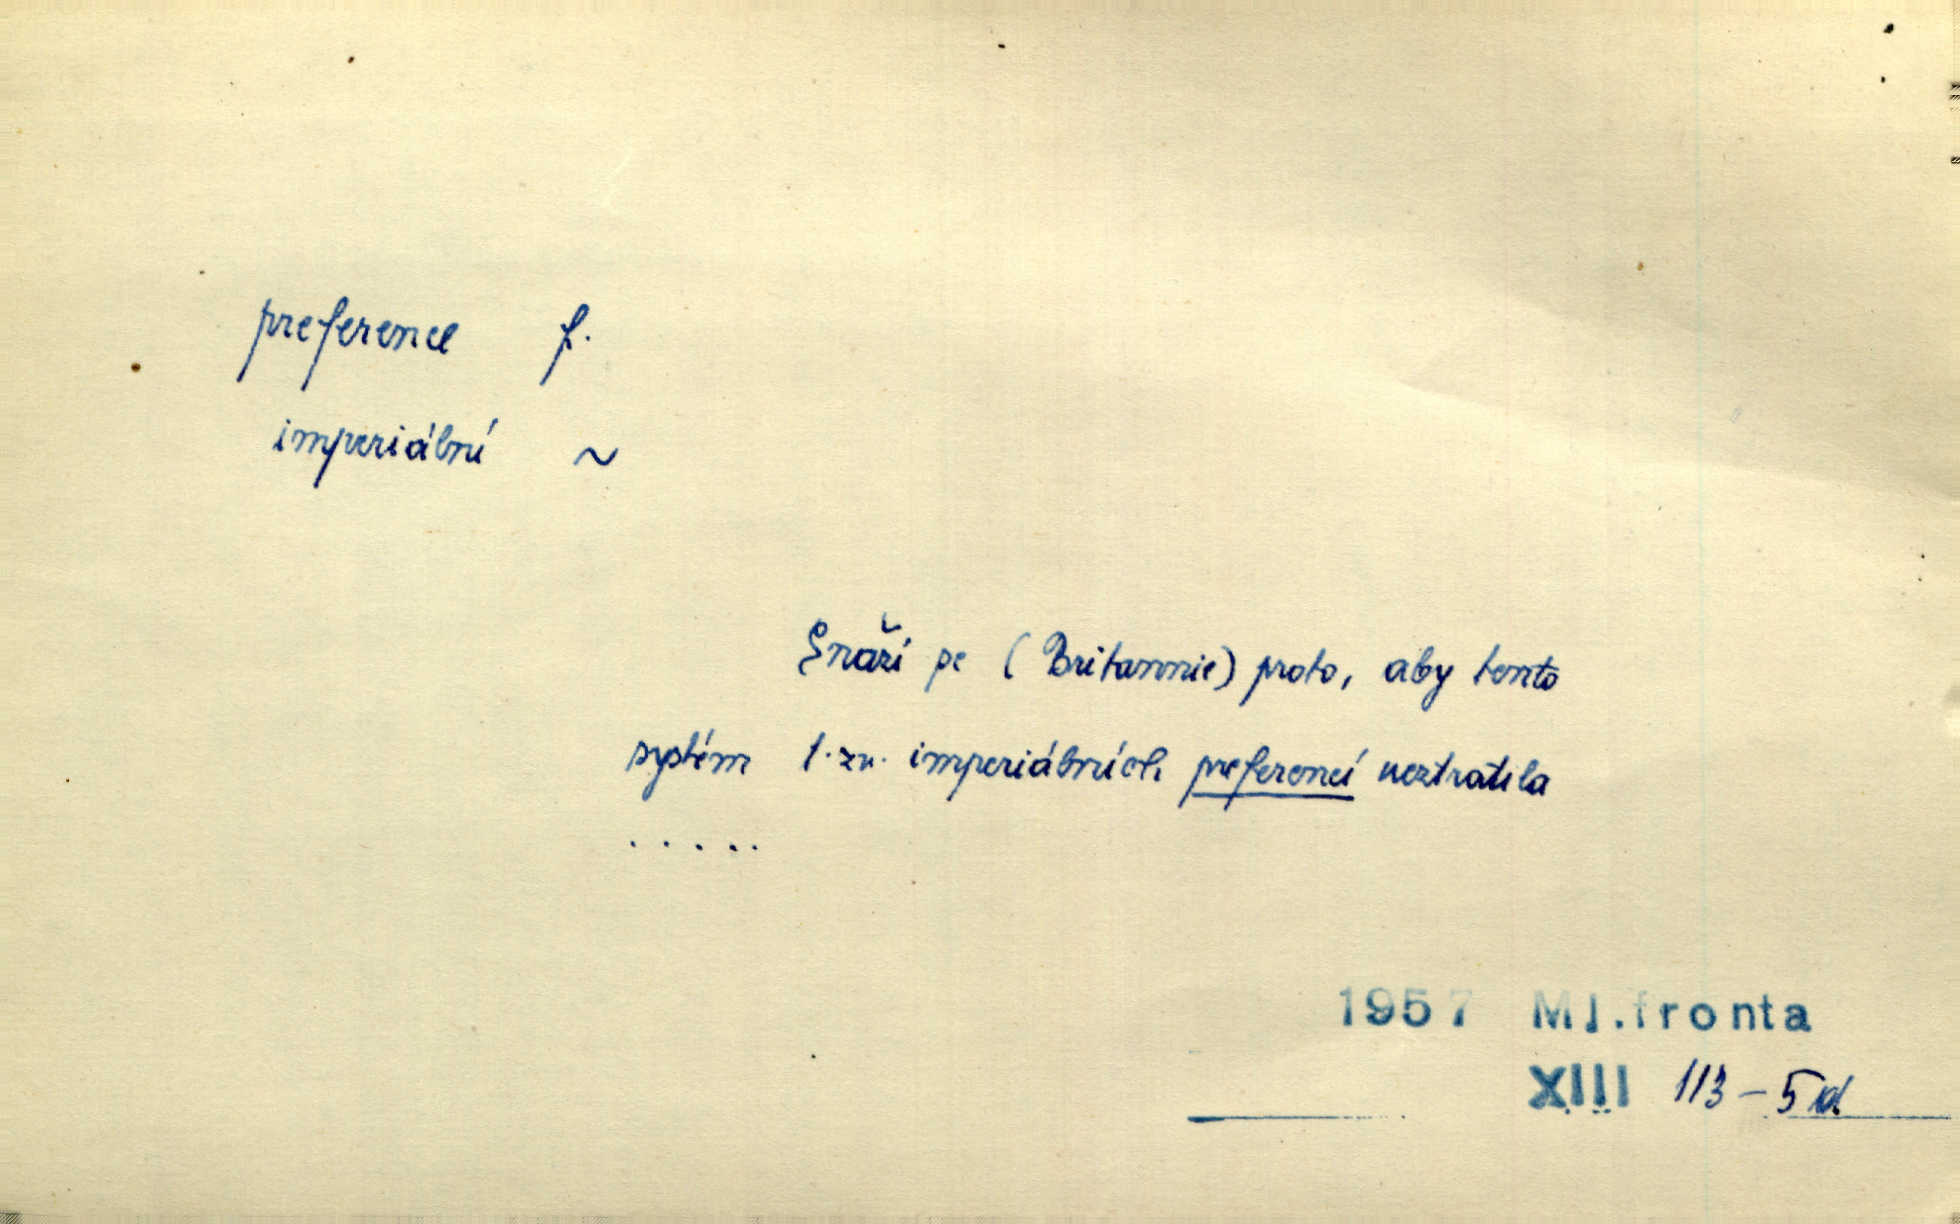 preference f.
imperiální ~
Snaží se (Britannie) proto, aby tento
systém t.zv. imperiálních preferencí neztratila
.....
1957 Ml.fronta
XIII 113-5d